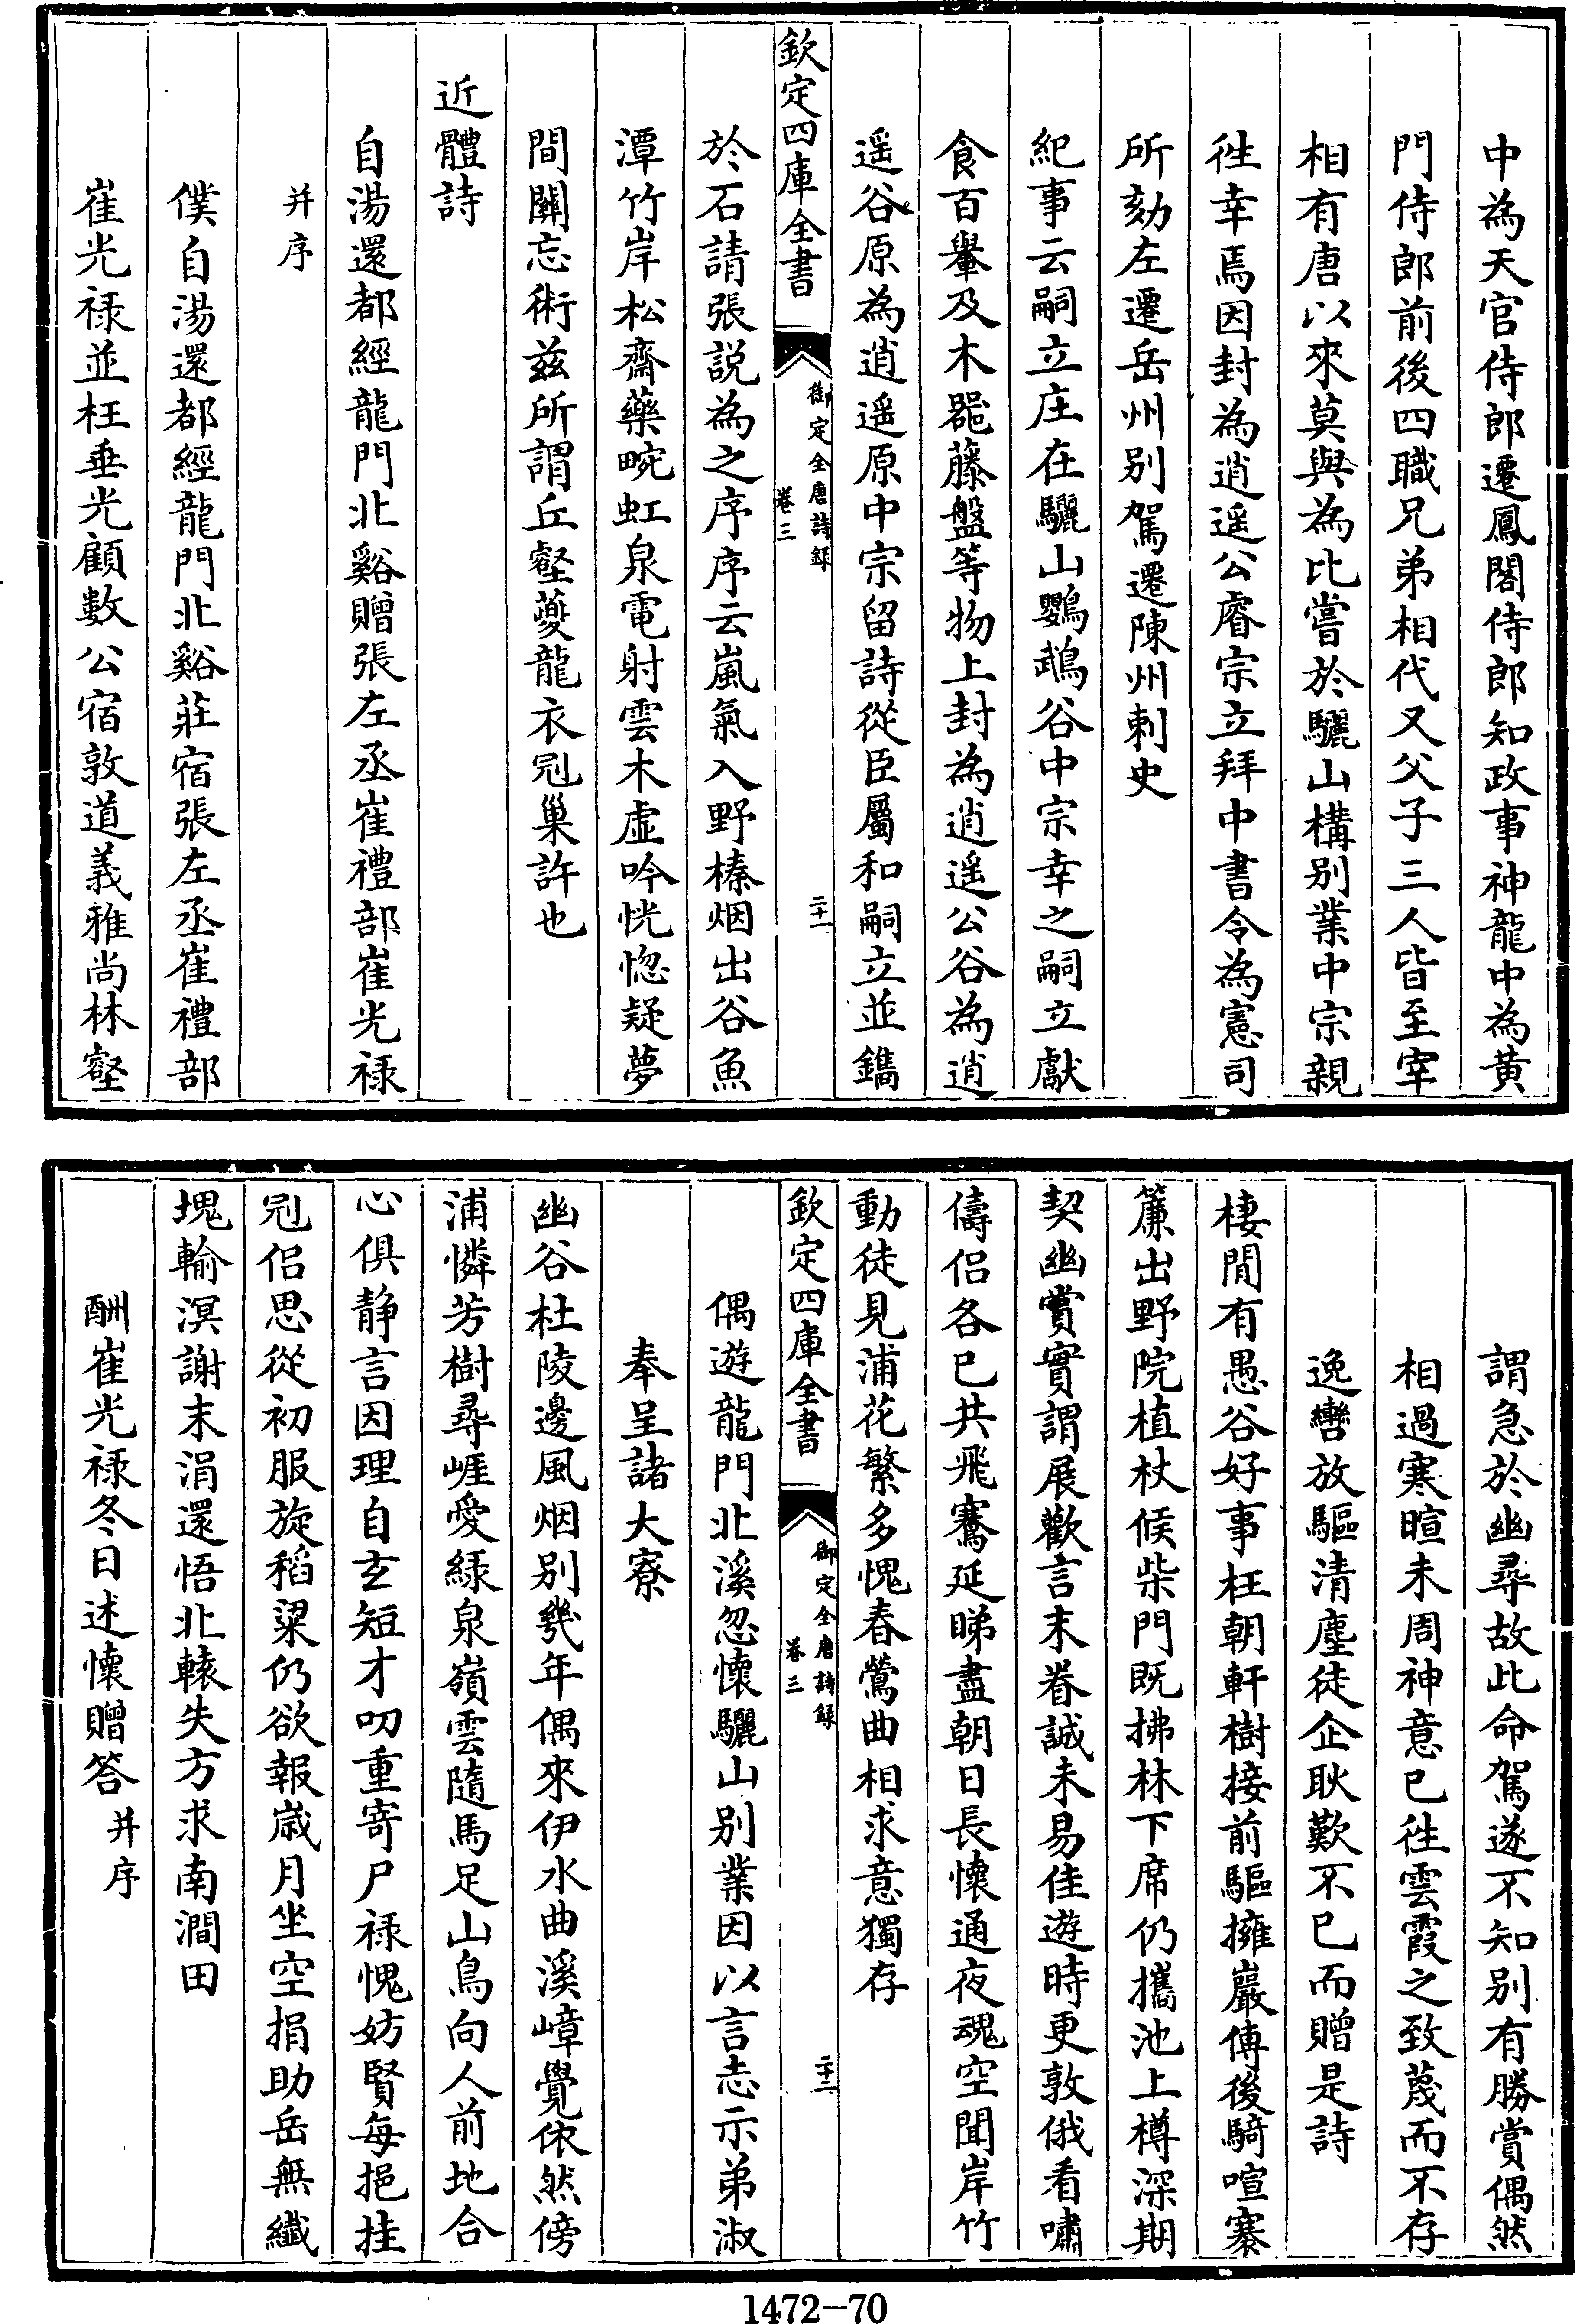 中為天官侍郎遷鳳閣侍郎知政事神龍中為黄
門侍郎前後四職兄弟相代又父子三人皆至宰
相有唐以來莫與為比嘗於驪山構别業中宗親
徃幸焉因封為逍遥公睿宗立拜中書令為憲司
所劾左遷岳州别駕遷陳州刺史
紀事云嗣立庄在驪山鸚鵡谷中宗幸之嗣立獻
食百轝及木器藤盤等物上封為逍遥公谷為逍
遥谷原為逍遥原中宗留詩從臣屬和嗣立並鐫
欽定四庫全書
御定全唐詩録
卷三
二十一
於石請張説為之序序云嵐氣入野榛烟出谷魚
潭竹岸松齋藥畹虹泉電射雲木虚吟恍惚疑夢
間關忘術兹所謂丘壑夔龍衣冠巢許也
近體詩
自湯還都經龍門北谿贈張左丞崔禮部崔光禄
并序
僕自湯還都經龍門北谿莊宿張左丞崔禮部
崔光禄並枉垂光顧數公宿敦道義雅尚林壑
謂急於幽尋故此命駕遂不知别有勝賞偶然
相過寒暄未周神意已徃雲霞之致蔑而不存
逸轡放驅清塵徒企耿歎不已而贈是詩
棲閒有愚谷好事枉朝軒樹接前驅擁巖傳後騎喧褰
簾出野院植杖候柴門既拂林下席仍攜池上樽深期
契幽賞實謂展歡言末眷誠未易佳遊時更敦俄看嘯
儔侣各已共飛騫延睇盡朝日長懷通夜魂空聞岸竹
動徒見浦花繁多愧春鶯曲相求意獨存
欽定四庫全書
御定全唐詩録
卷三
二十二
偶遊龍門北溪忽懷驪山别業因以言志示弟淑
奉呈諸大寮
幽谷杜陵邊風烟别幾年偶來伊水曲溪嶂覺依然傍
浦憐芳樹尋崖愛緑泉嶺雲隨馬足山鳥向人前地合
心俱静言因理自𤣥短才叨重寄尸禄愧妨賢每挹挂
冠侣思從初服旋稻粱仍欲報歳月坐空捐助岳無纖
塊輸溟謝末涓還悟北轅失方求南澗田
酬崔光禄冬日述懷贈答并序
1472-70